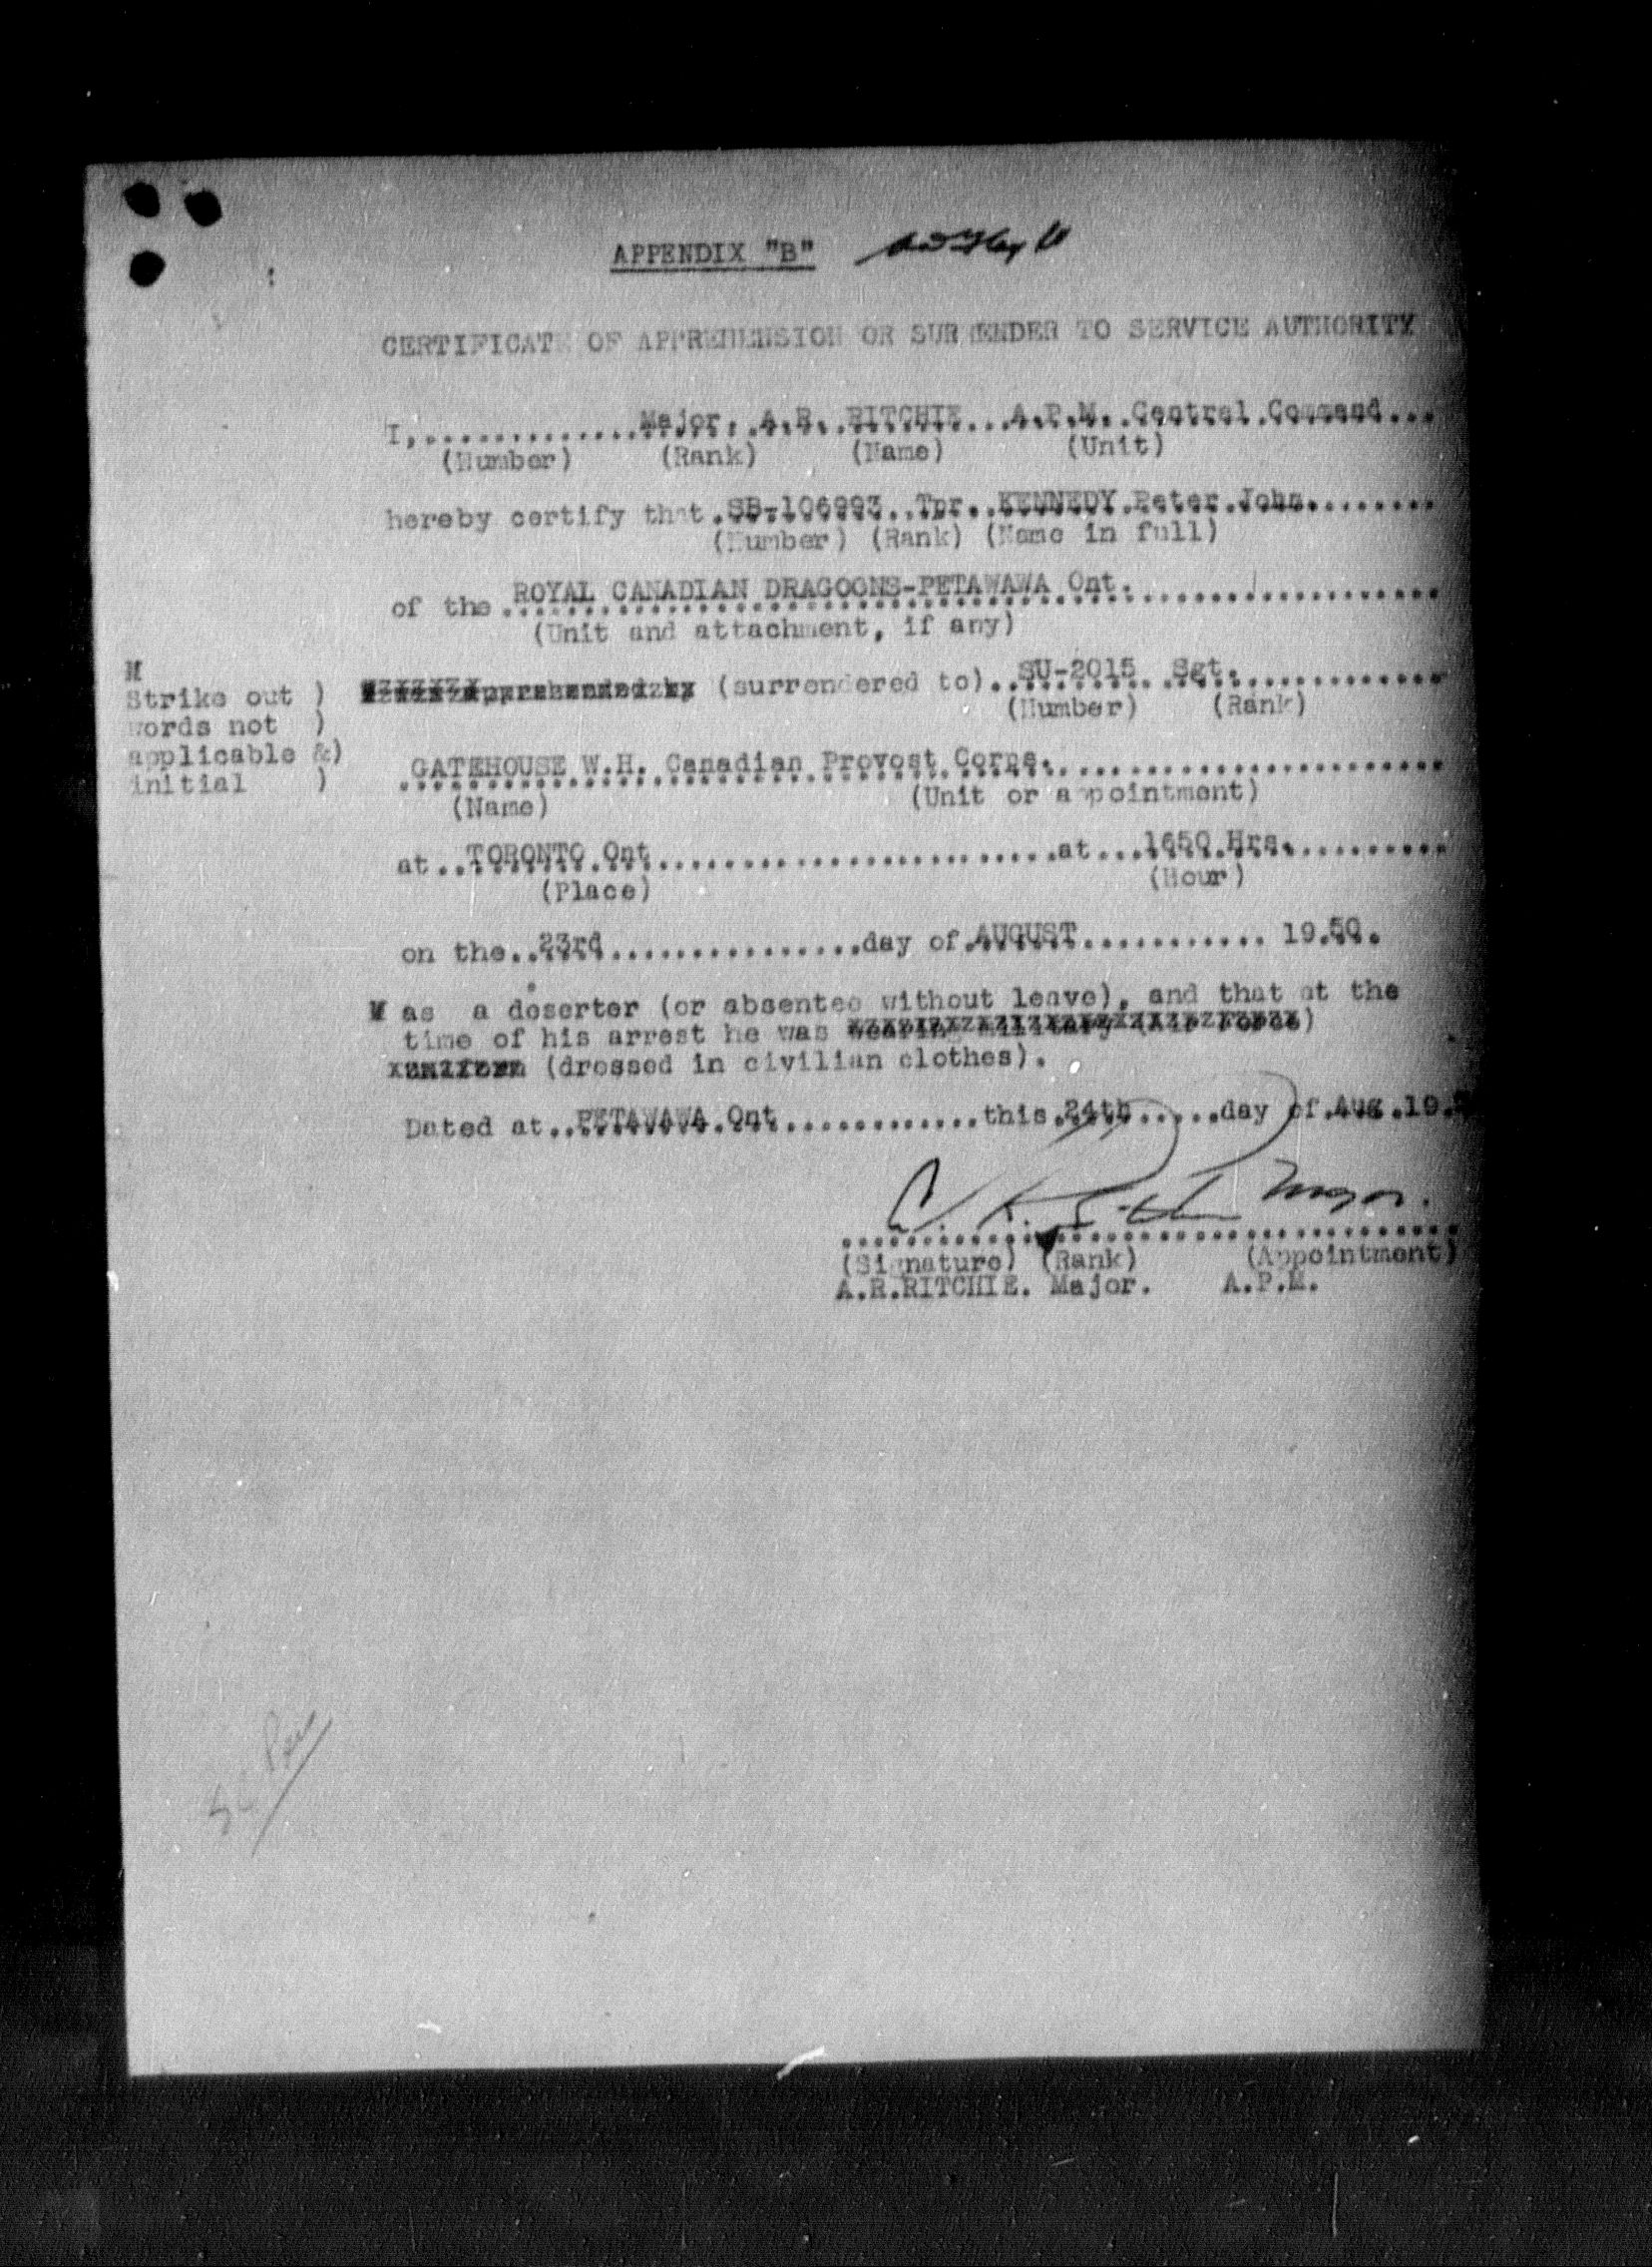 APPENDIX "B"
CERTIFICATE OF APPREHENSION OR SURRENDER TO SERVICE AUTHORITY
I,..............Major. A.R. RITCHIE...A.P.M. Central Command...
(Number) (Rank) (Name) (Unit)
hereby certify that.SB-106993..Tpr..KENNEDY.Peter.John........
(Number) (Rank) (Name in full)
of the.ROYAL CANADIAN DRAGOONS-PETAWAWA Ont...................
(Unit and attachment, if any)
M
Strike out )
words not )
applicable &)
initial )
apprehended by (surrendered to)..SU-2015..Sgt.............
(Number) (Rank)
.GATEHOUSE W.H. Canadian Provost Corps.......................
(Name) (Unit or appointment)
at..TORONTO.Ont.........................at...1650.Hrs..........
(Place) (Hour)
on the..23rd................day of.AUGUST............ 19.50.
M as a deserter (or absentee without leave), and that at the
time of his arrest he was wearing military (Air Force)
uniform (dressed in civilian clothes).
Dated at..PETAWAWA.Ont.............this.24th.....day of.Aug.19.
A. R. Ritchie Major.
(Signature) (Rank) (Appointment)
A.R.RITCHIE. Major. A.P.M.